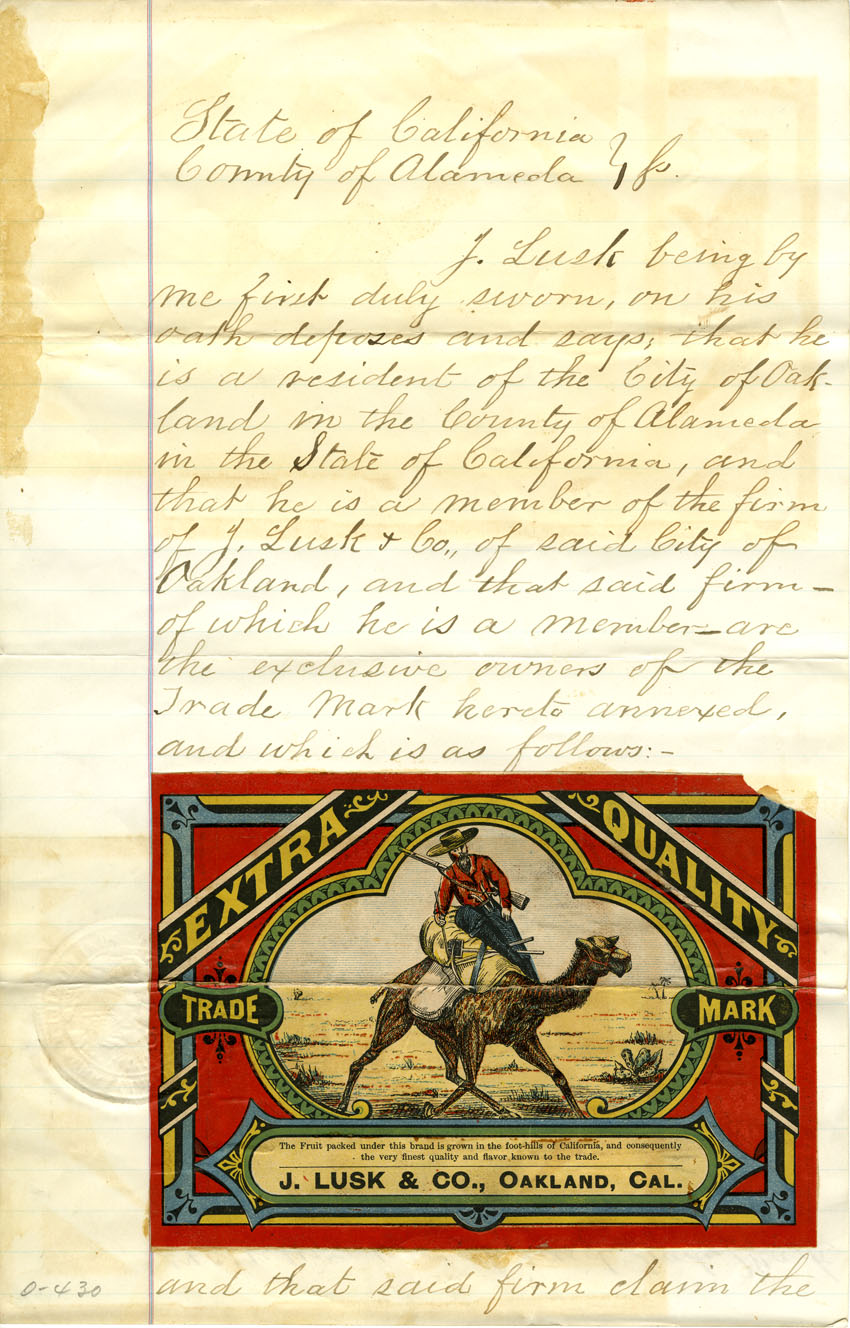 State of California
County of Alameda } ss.
J. Lusk being by
me first duly sworn, on his
oath deposes and says; that he
is a resident of the City of Oak-
land in the County of Alameda
in the State of California, and
that he is a member of the firm
of J. Lusk & Co., of said City of
Oakland, and that said firm -
of which he is a member - are
the exclusive owners of the
Trade Mark hereto annexed,
and which is as follows:-
EXTRA QUALITY
TRADE MARK
The Fruit packed under this brand is grown in the foot-hills of California, and consequently
the very finest quality and flavor known to the trade.
J. LUSK & CO., OAKLAND, CAL.
and that said firm claim the
0-430